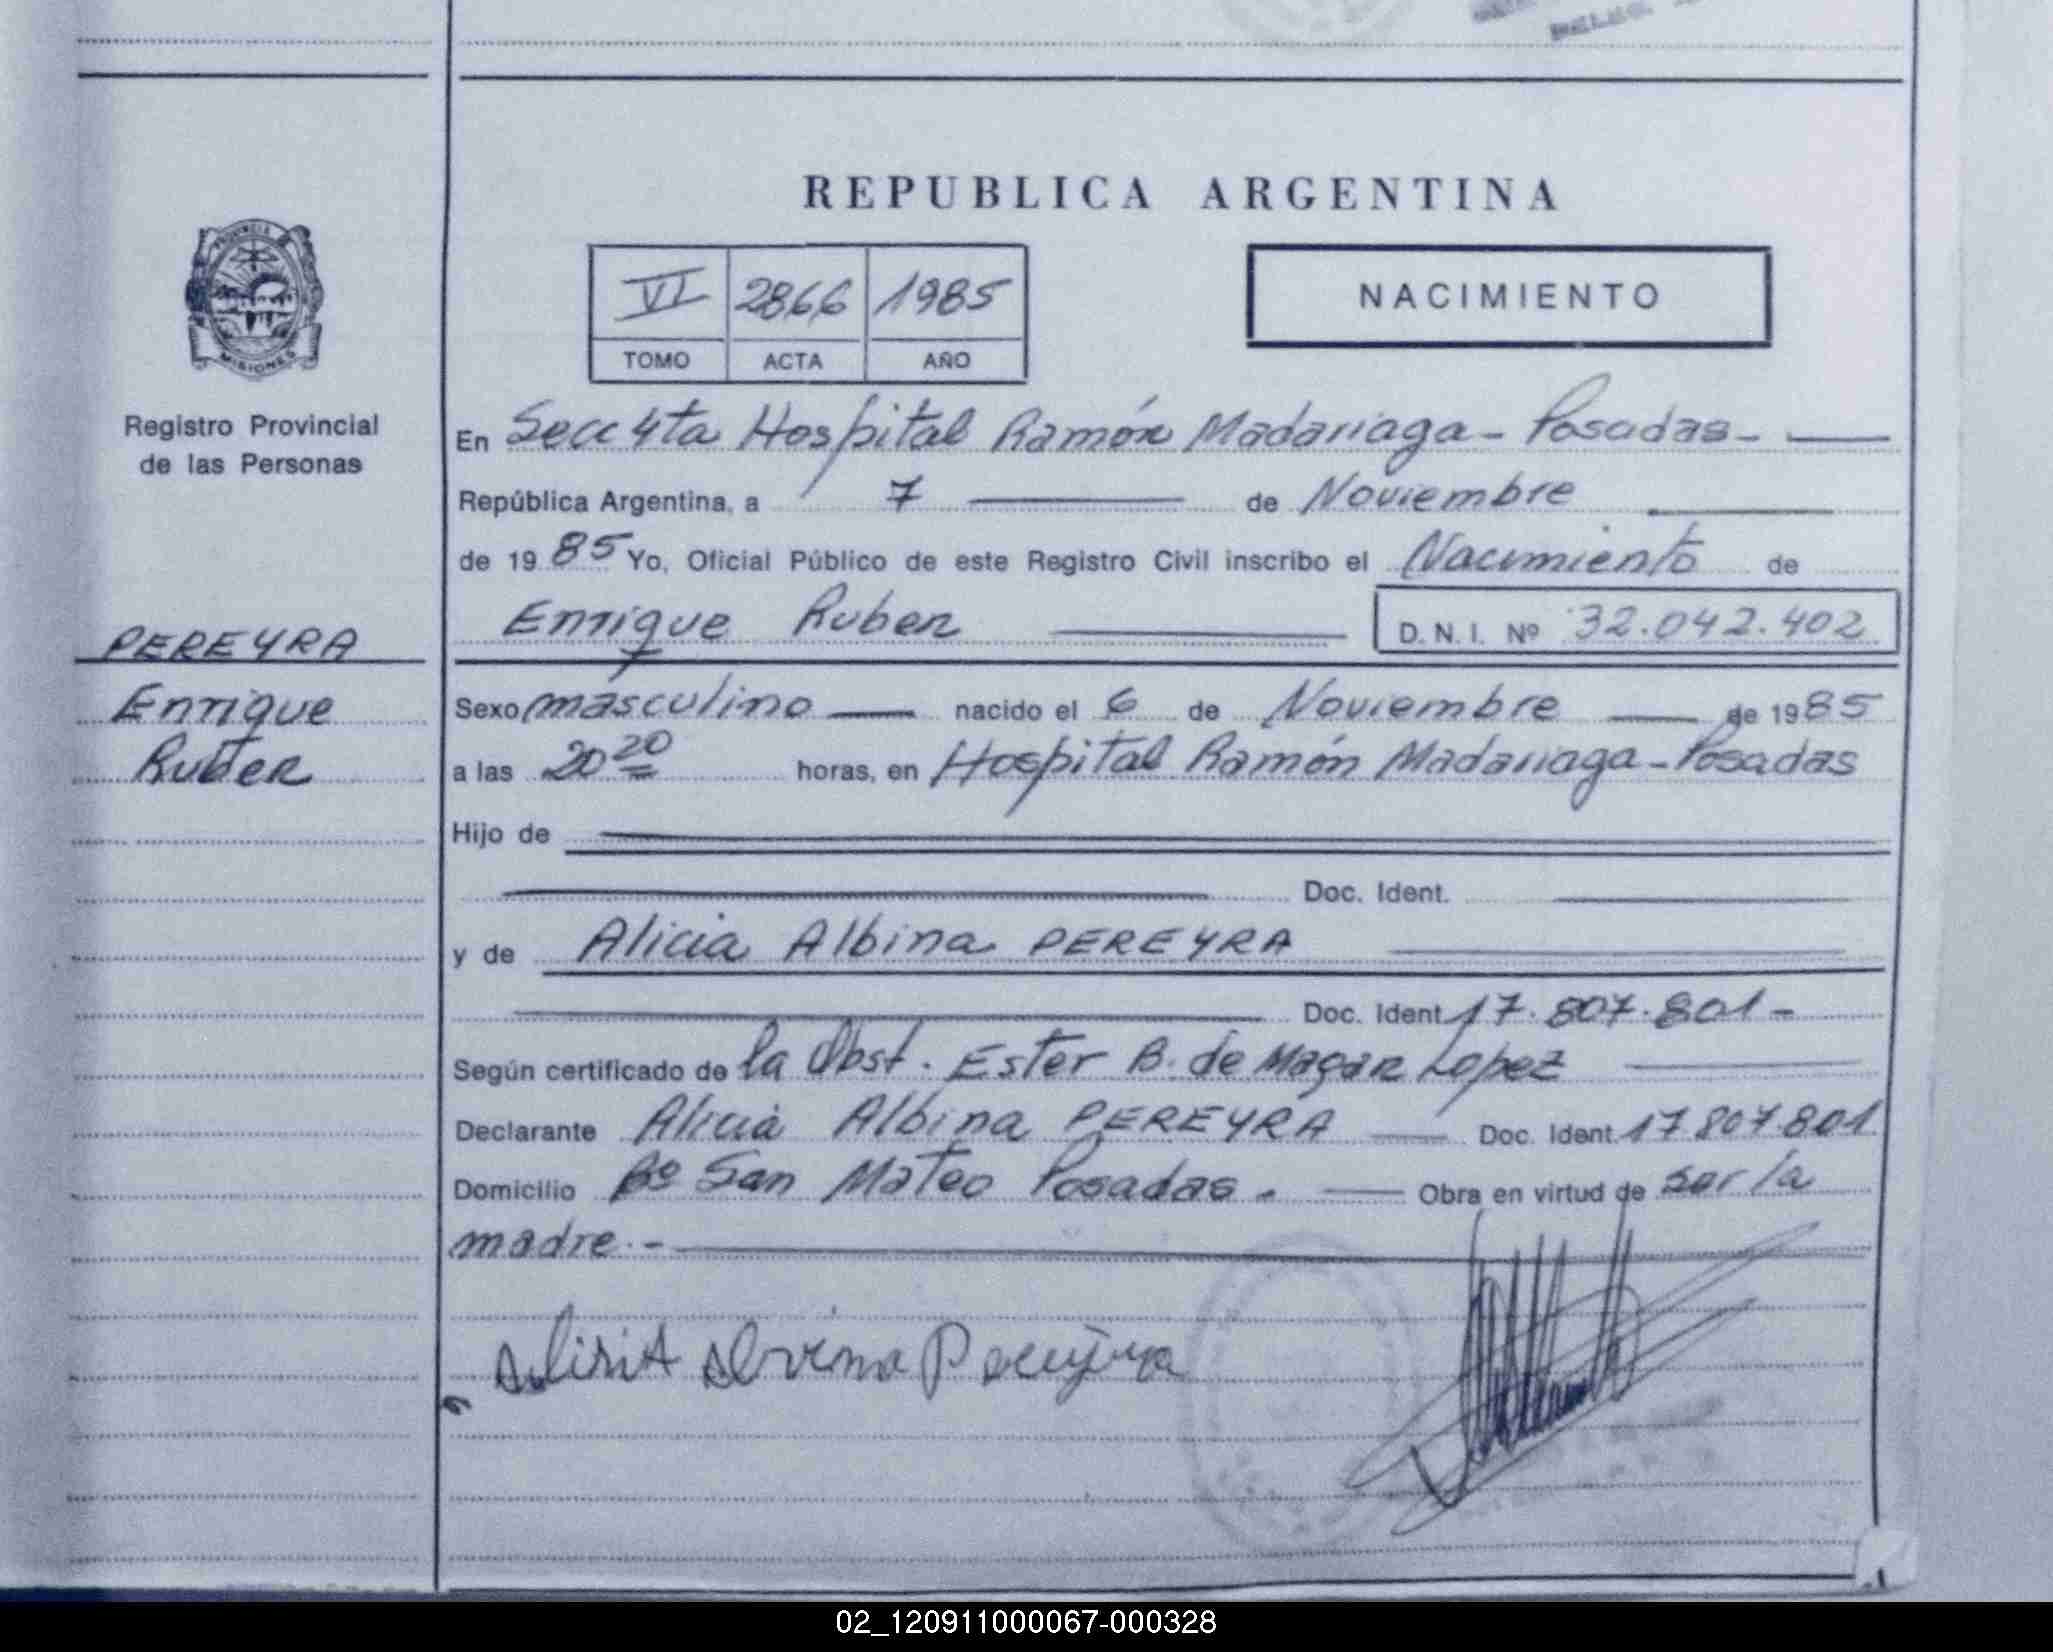 REPUBLICA ARGENTINA
VI 2866 1985
TOMO ACTA AÑO
NACIMIENTO
PROVINCIA
MISIONES
Registro Provincial
de las Personas
PEREYRA
Enrique
Ruber
En Secc 4ta Hospital Ramón Madariaga - Posadas -
República Argentina, a 7 de Noviembre
de 1985 Yo, Oficial Público de este Registro Civil inscribo el Nacimiento de
Enrique Ruben D. N. I. Nº 32.042.402
Sexo masculino nacido el 6 de Noviembre de 1985
a las 20 20 horas, en Hospital Ramón Madariaga - Posadas
Hijo de
Doc. Ident.
y de Alicia Albina PEREYRA
Doc. Ident. 17.807.801 -
Según certificado de la Obst. Ester B. de Lopez
Declarante Alicia Albina PEREYRA Doc. Ident. 17.807.801
Domicilio Bº San Mateo Posadas . Obra en virtud de ser la
madre . -
02_120911000067-000328